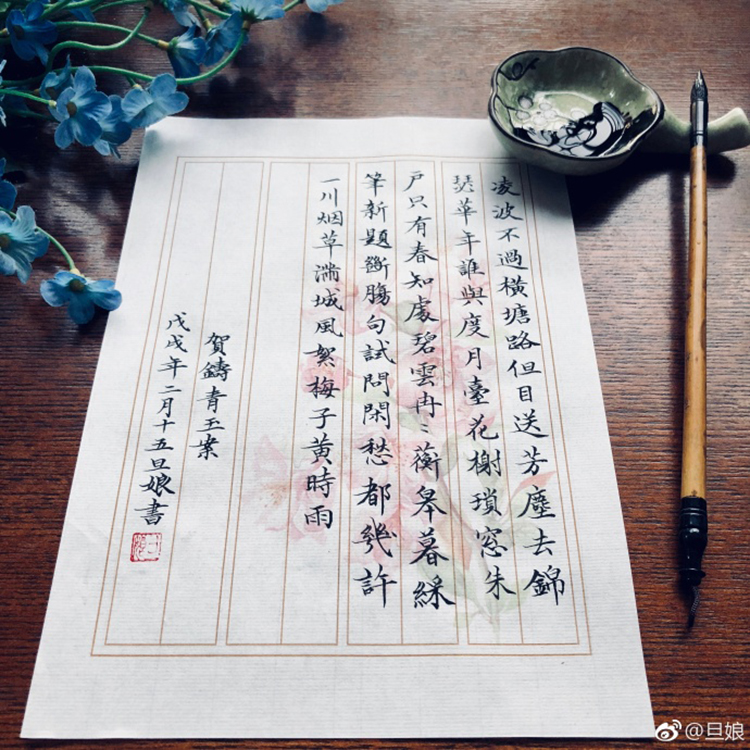 凌波不過橫塘路但目送芳塵去錦
瑟華年誰與度月臺花榭瑣窓朱
戶只有春知處碧雲冉〻蘅皋暮綵
筆新題斷膓句試問閑愁都幾許
一川烟草滿城風絮梅子黃時雨
賀鑄青玉案
戊戌年二月十五旦娘書
@旦娘